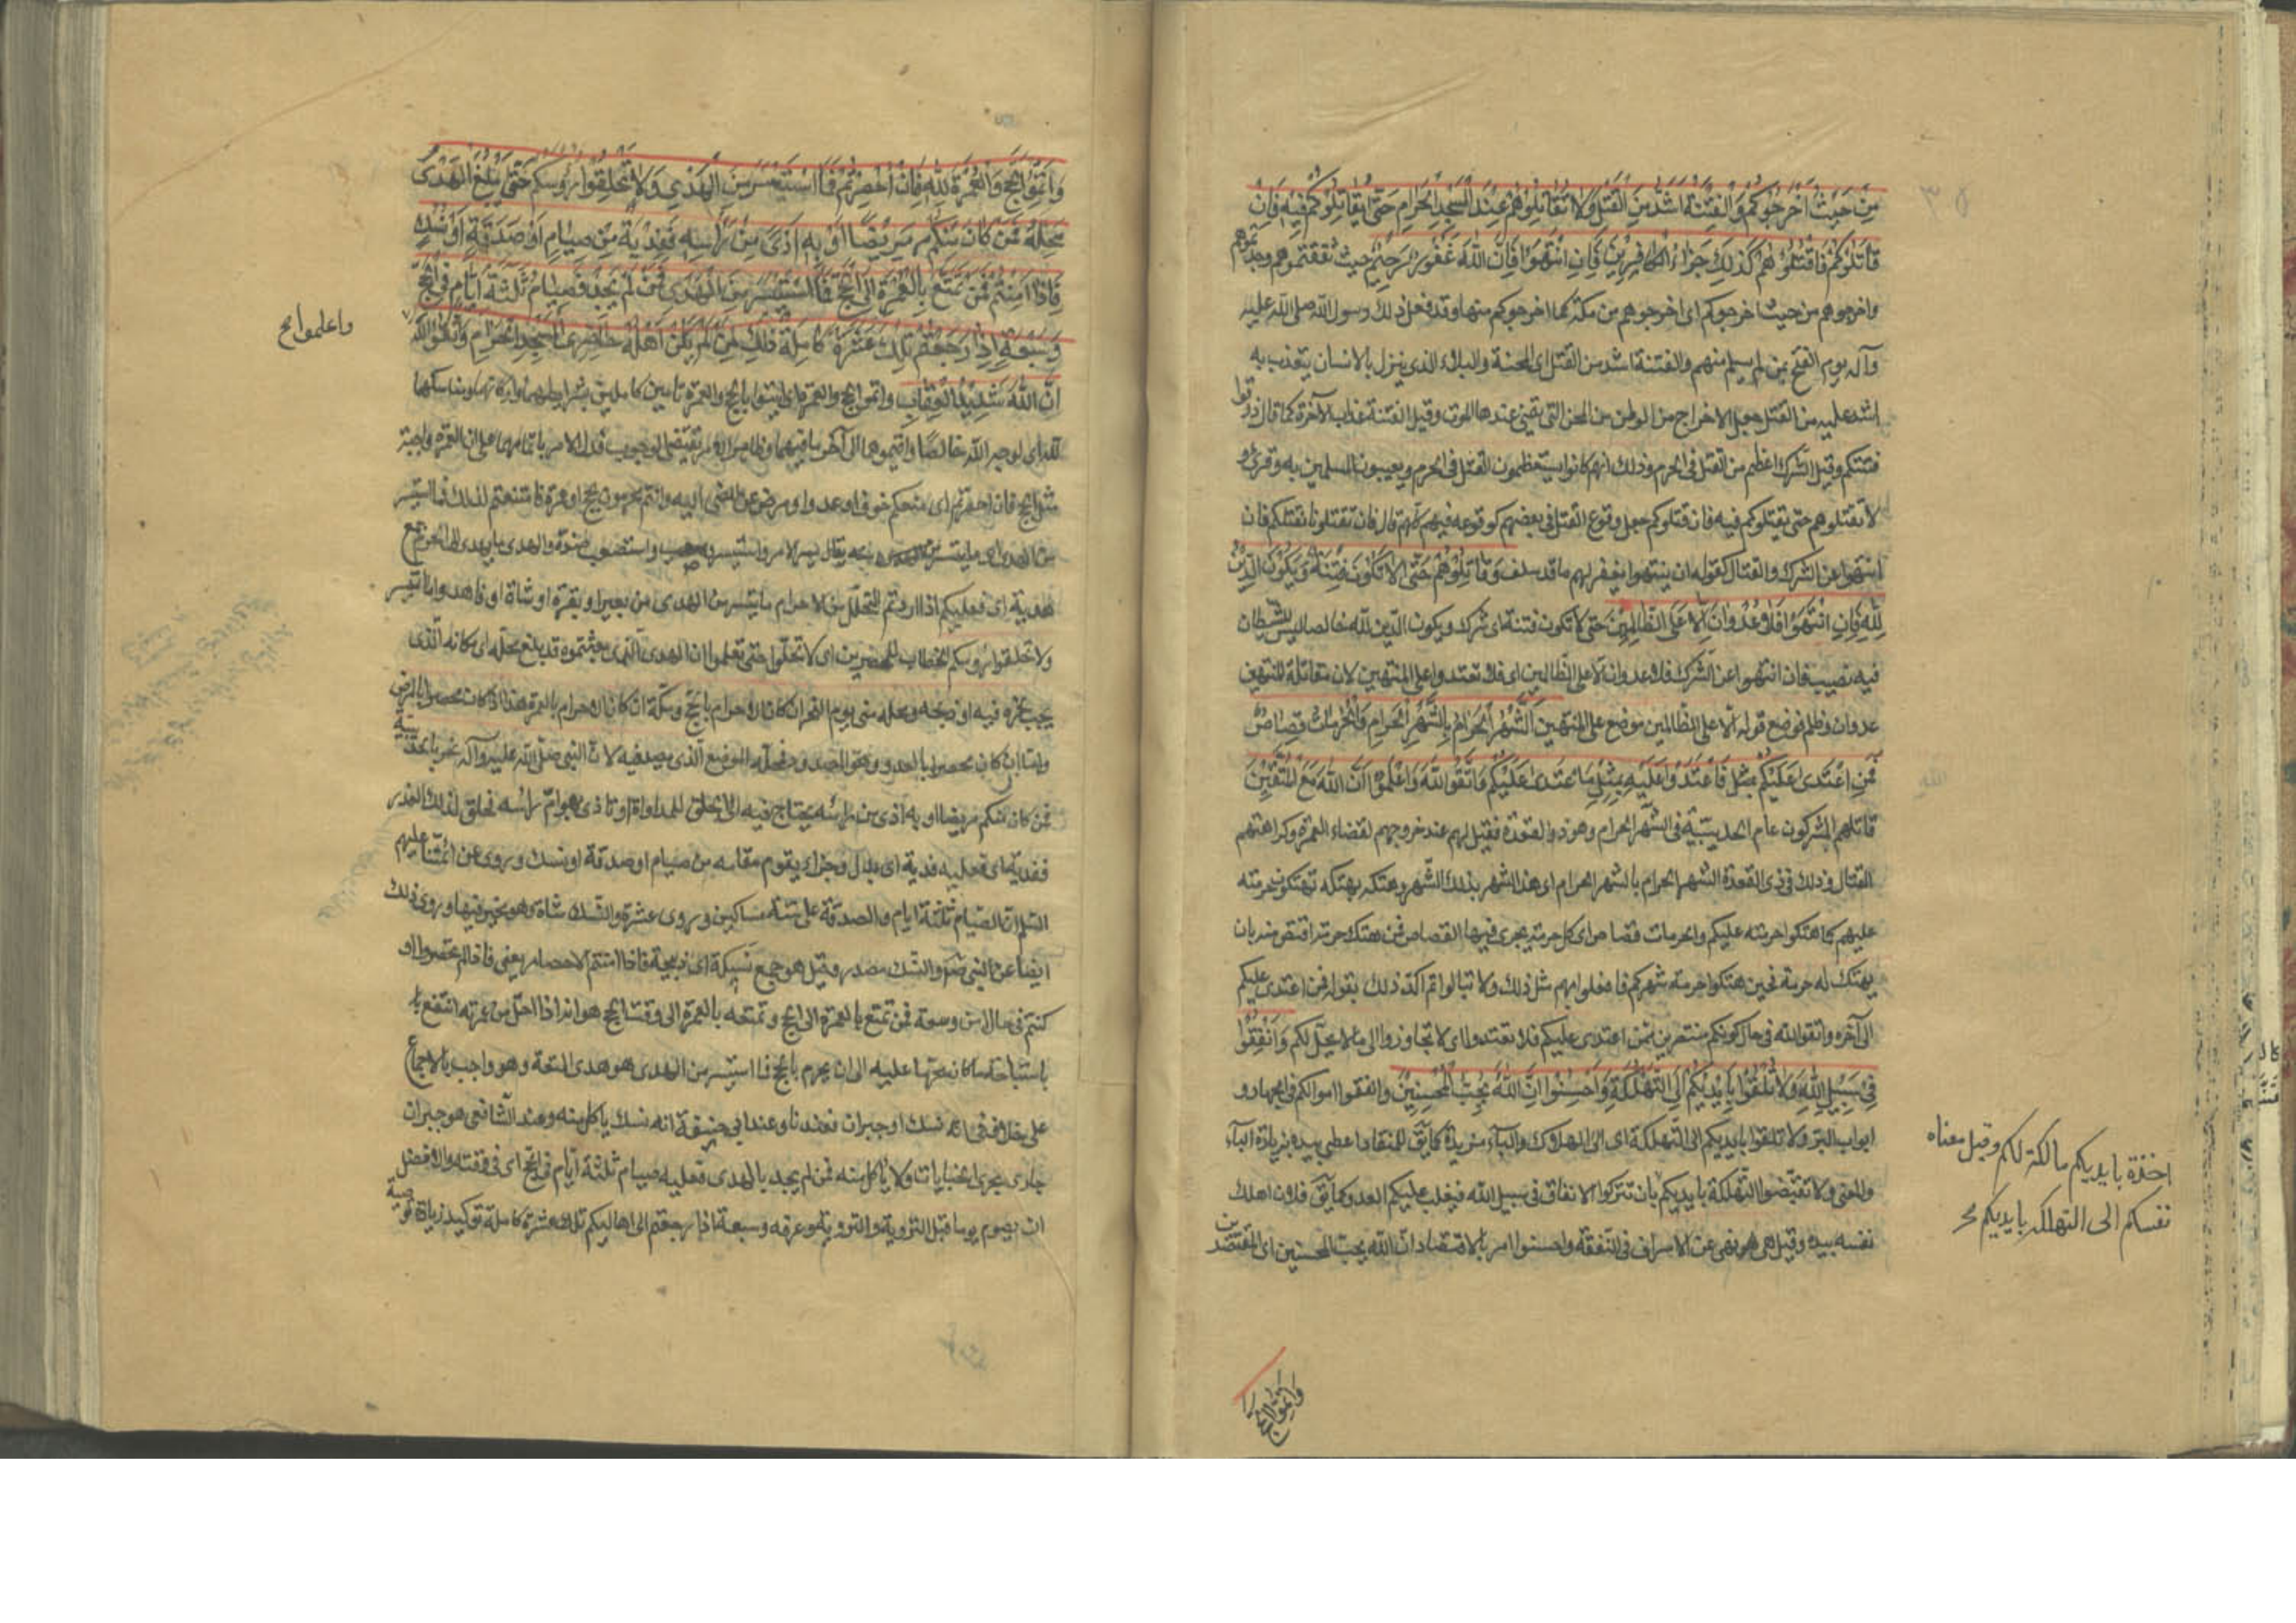 مِنْ حَيْثُ أَخْرَجُوكُمْ وَالْفِتْنَةُ أَشَدُّ مِنَ الْقَتْلِ وَلَا تُقَاتِلُوهُمْ عِنْدَ الْمَسْجِدِ الْحَرَامِ حَتَّى يُقَاتِلُوكُمْ فِيهِ فَإِنْ
قَاتَلُوكُمْ فَاقْتُلُوهُمْ كَذَلِكَ جَزَاءُ الْكَافِرِينَ فَإِنِ انْتَهَوْا فَإِنَّ اللَّهَ غَفُورٌ رَحِيمٌ حيث ثقفتموهم وجدتموهم
واخرجوهم من حيث اخرجوكم اى اخرجوهم من مكة كما اخرجوكم منها وقد فعل ذلك رسول الله صلى الله عليه
وآله يوم الفتح بمن لم يسلم منهم والفتنة اشد من القتل اى المحنة والبلاء الذى ينزل بالانسان يتعذب به
اشد عليه من القتل جعل الاخراج من الوطن من المحن التى يتمنى عندها الموت وقيل الفتنة عذاب الآخرة كما قال ذوقوا
فتنتكم وقيل الشرك اعظم من القتل فى الحرم وذلك انهم كانوا يستعظمون القتل فى الحرم ويعيبون المسلمين به وقرئ و
لا تقتلوهم حتى يقتلوكم فيه فان قتلوكم جعل وقوع القتل فى بعضهم كوقوعه فيهم كلهم قال فان تقتلونا نقتلكم فان
انتهوا عن الشرك والقتال كقوله ان ينتهوا يغفر لهم ما قد سلف وَقَاتِلُوهُمْ حَتَّى لَا تَكُونَ فِتْنَةٌ وَيَكُونَ الدِّينُ
لِلَّهِ فَإِنِ انْتَهَوْا فَلَا عُدْوَانَ إِلَّا عَلَى الظَّالِمِينَ حتى لا تكون فتنة اى شرك ويكون الدين لله خالصا ليس للشيطان
فيه نصيب فان انتهوا عن الشرك فلا عدوان الا على الظالمين اى فلا تعتدوا على المنتهين لان مقاتلة المنتهين
عدوان وظلم فوضع قوله الا على الظالمين موضع على المنتهين الشَّهْرُ الْحَرَامُ بِالشَّهْرِ الْحَرَامِ وَالْحُرُمَاتُ قِصَاصٌ
فَمَنِ اعْتَدَى عَلَيْكُمْ فَاعْتَدُوا عَلَيْهِ بِمِثْلِ مَا اعْتَدَى عَلَيْكُمْ وَاتَّقُوا اللَّهَ وَاعْلَمُوا أَنَّ اللَّهَ مَعَ الْمُتَّقِينَ
قاتلهم المشركون عام الحديبية فى الشهر الحرام وهو ذو القعدة فقيل لهم عند خروجهم لقضاء العمرة وكراهتهم
القتال وذلك فى ذى القعدة الشهر الحرام بالشهر الحرام اى هذا الشهر بذلك الشهر وهتكه بهتكه تهتكون حرمته
عليهم كما هتكوا حرمته عليكم والحرمات قصاص اى كل حرمة يجرى فيها القصاص فمن هتك حرمة اقتص منه بان
يهتك له حرمة فحين هتكوا حرمة شهركم فافعلوا بهم مثل ذلك ولا تبالوا ثم اكد ذلك بقوله فمن اعتدى عليكم
الى آخره واتقوا الله فى حال كونكم منتصرين ممن اعتدى عليكم فلا تعتدوا اى لا تجاوزوا الى ما لا يحل لكم وَأَنْفِقُوا
فِي سَبِيلِ اللَّهِ وَلَا تُلْقُوا بِأَيْدِيكُمْ إِلَى التَّهْلُكَةِ وَأَحْسِنُوا إِنَّ اللَّهَ يُحِبُّ الْمُحْسِنِينَ وانفقوا اموالكم فى الجهاد و
ابواب البر ولا تلقوا بايديكم الى التهلكة اى الى الهلاك والباء مزيدة كما يق للمنقاد اعطى بيده بزيادة الباء
والمعنى ولا تقبضوا التهلكة بايديكم بان تتركوا الانفاق فى سبيل الله فيغلب عليكم العدو كما يق فلان اهلك
نفسه بيده وقيل هو نهى عن الاسراف فى النفقة واحسنوا امر بالاقتصاد ان الله يحب المحسنين اى المقتصدين
اخذة بايديكم مالكة لكم وقيل معناه
نفسكم الى التهلكه بايديكم
واتموا الحج
وَأَتِمُّوا الْحَجَّ وَالْعُمْرَةَ لِلَّهِ فَإِنْ أُحْصِرْتُمْ فَمَا اسْتَيْسَرَ مِنَ الْهَدْيِ وَلَا تَحْلِقُوا رُءُوسَكُمْ حَتَّى يَبْلُغَ الْهَدْيُ
مَحِلَّهُ فَمَنْ كَانَ مِنْكُمْ مَرِيضًا أَوْ بِهِ أَذًى مِنْ رَأْسِهِ فَفِدْيَةٌ مِنْ صِيَامٍ أَوْ صَدَقَةٍ أَوْ نُسُكٍ
فَإِذَا أَمِنْتُمْ فَمَنْ تَمَتَّعَ بِالْعُمْرَةِ إِلَى الْحَجِّ فَمَا اسْتَيْسَرَ مِنَ الْهَدْيِ فَمَنْ لَمْ يَجِدْ فَصِيَامُ ثَلَثَةِ أَيَّامٍ فِي الْحَجِّ
وَسَبْعَةٍ إِذَا رَجَعْتُمْ تِلْكَ عَشَرَةٌ كَامِلَةٌ ذَلِكَ لِمَنْ لَمْ يَكُنْ أَهْلُهُ حَاضِرِي الْمَسْجِدِ الْحَرَامِ وَاتَّقُوا اللَّهَ
واعلموا
أَنَّ اللَّهَ شَدِيدُ الْعِقَابِ واتموا الحج والعمرة اى ائتوا بالحج والعمرة تامين كاملين بشرايطهما واركانهما ومناسكهما
لله اى لوجه الله خالصا واقيموهما الى آخر ما فيهما وظاهر الامر يقتضى الوجوب فدل الامر باتمامهما على ان العمرة واجبة
مثل الحج فان احصرتم اى منعكم خوف او عدو او مرض عن المضى اليه وانتم محرمون بحج او عمرة فامتنعتم لذلك فما استيسر
من الهدى اى ما تيسر منه يقال يسر الامر واستيسر صعب واستصعب والهدى ما يهدى الى الحرم جمع
هدية اى فعليكم اذا اردتم التحلل من الاحرام ما تيسر من الهدى من بعير او بقرة او شاة او فاهدوا ما تيسر
ولا تحلقوا رؤسكم الخطاب للمحصرين اى لا تحلوا حتى تعلموا ان الهدى الذى بعثتموه قد بلغ محله اى مكانه الذى
يجب نحره فيه او ذبحه ومحله منى يوم النحر ان كان الاحرام بالحج ومكة ان كان الاحرام بالعمرة هذا اذا كان محصورا بالمرض
واما ان كان محصورا بالعدو وهو المصدود فمحله الموضع الذى يصد فيه لان النبى صلى الله عليه وآله نحر بالحديبية
فمن كان منكم مريضا او به اذى من راسه يحتاج فيه الى الحلق للمداواة او تاذى بهوام راسه فحلق لذلك العذر
ففدية اى فعليه فدية اى بدل وجزاء يقوم مقامه من صيام او صدقة او نسك وروى عن ائمتنا عليهم
السلم ان الصيام ثلثة ايام والصدقة على ستة مساكين وروى عشرة والنسك شاة وهو مخير فيها وروى ذلك
ايضا عن النبى والنسك مصدر وقيل هو جمع نسيكة اى ذبيحة فاذا امنتم الاحصار يعنى فاذا لم تحصروا او
كنتم فى حال امن وسعة فمن تمتع بالعمرة الى الحج وتمتعه بالعمرة الى وقت الحج هو انه اذا احل من عمرته انتفع با
باستباحة ما كان محرما عليه الى ان يحرم بالحج فما استيسر من الهدى هو هدى المتعة وهو واجب بالاجماع
على خلاف فى انه نسك او جبران فعندنا وعند ابى حنيفة انه نسك ياكل منه وعند الشافعى هو جبران
جارى مجرى الجنايات ولا ياكل منه فمن لم يجد بالهدى فعليه صيام ثلثة ايام فى الحج اى فى وقته والافضل
ان يصوم يوما قبل التروية والتروية وعرفه وسبعة اذا رجعتم الى اهاليكم تلك عشرة كاملة توكيد زيادة توصية